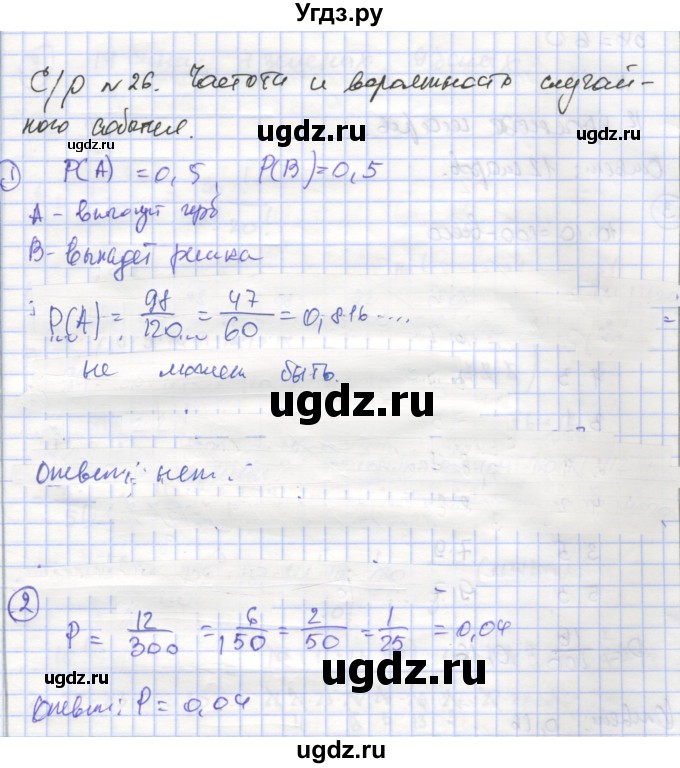 Угдз.ру
С/р №26. Частота и вероятность случай-
ного события.
ugdz.ru ugdz.ru
1) P(A) = 0,5, P(B) = 0,5
A - выпадет герб
B - выпадет решка
P(A) = 98/120 = 47/60 = 0,816....
ugdz.ru ugdz.ru
не может быть.
ugdz.ru
Ответ: нет.
ugdz.ru ugdz.ru
2) P = 12/300 = 6/150 = 2/50 = 1/25 = 0,04
ugdz.ru ugdz.ru
Ответ: P = 0,04
ugdz.ru
Угдз.ру